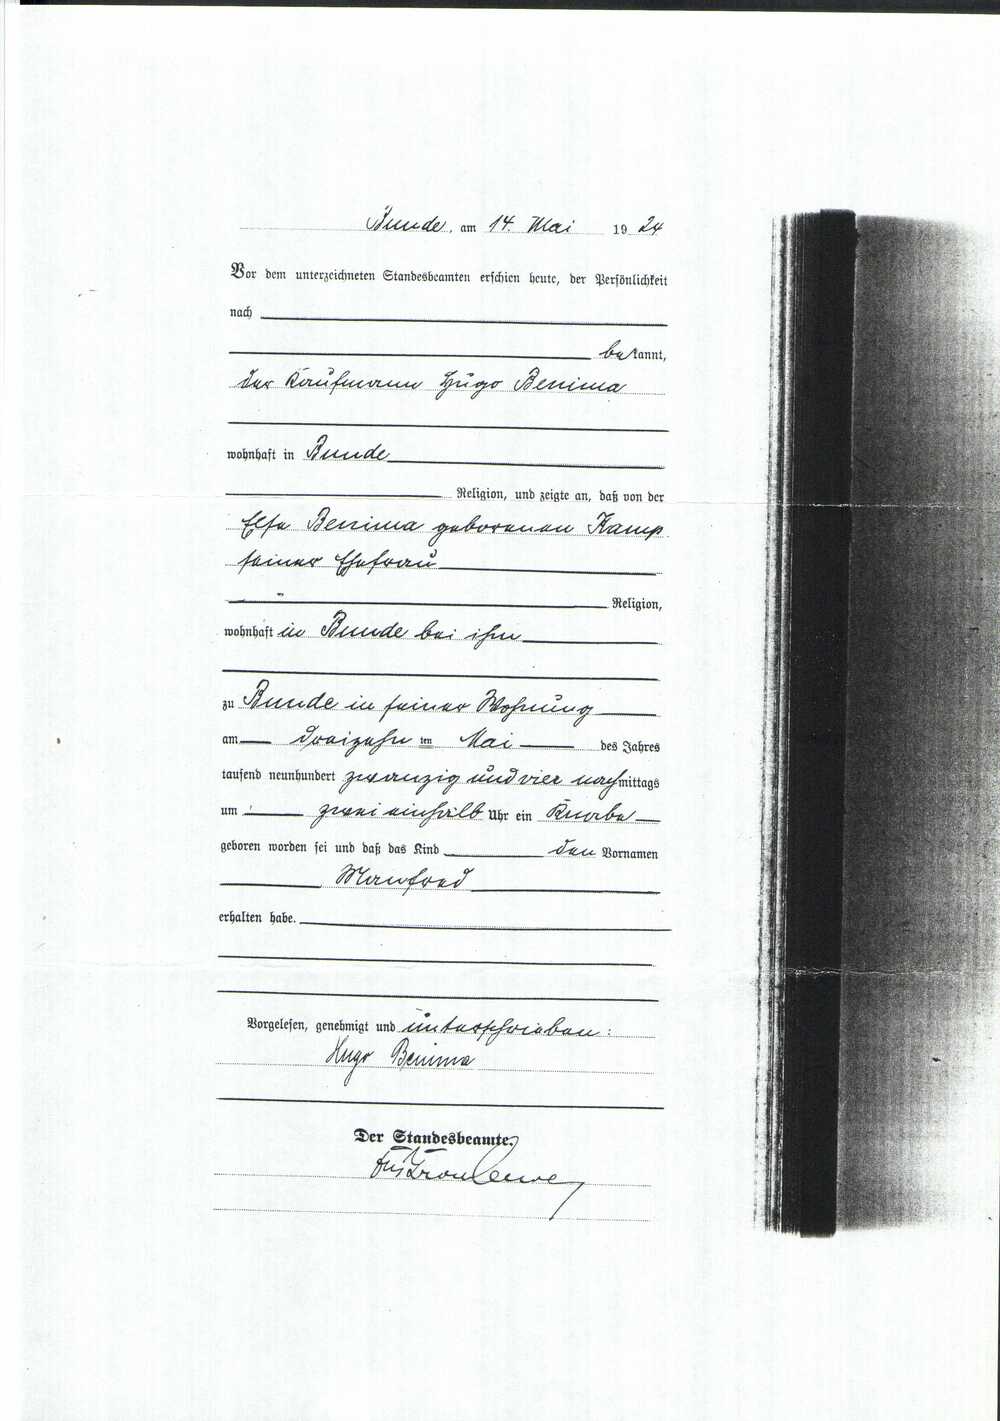 Bunde, am 14. Mai 1924
Vor dem unterzeichneten Standesbeamten erschien heute, der Persönlichkeit
nach
bekannt,
der Kaufmann Hugo Benima
wohnhaft in Bunde
Religion, und zeigte an, daß von der
Else Benima geborenen Kamp
seiner Ehefrau
Religion,
wohnhaft in Bunde bei ihm
zu Bunde in seiner Wohnung
am dreizehnten Mai des Jahres
tausend neunhundert zwanzig und vier nachmittags
um zweieinhalb Uhr ein Knabe
geboren worden sei und daß das Kind den Vornamen
Manfred
erhalten habe.
Vorgelesen, genehmigt und unterschrieben:
Hugo Benima
Der Standesbeamte.